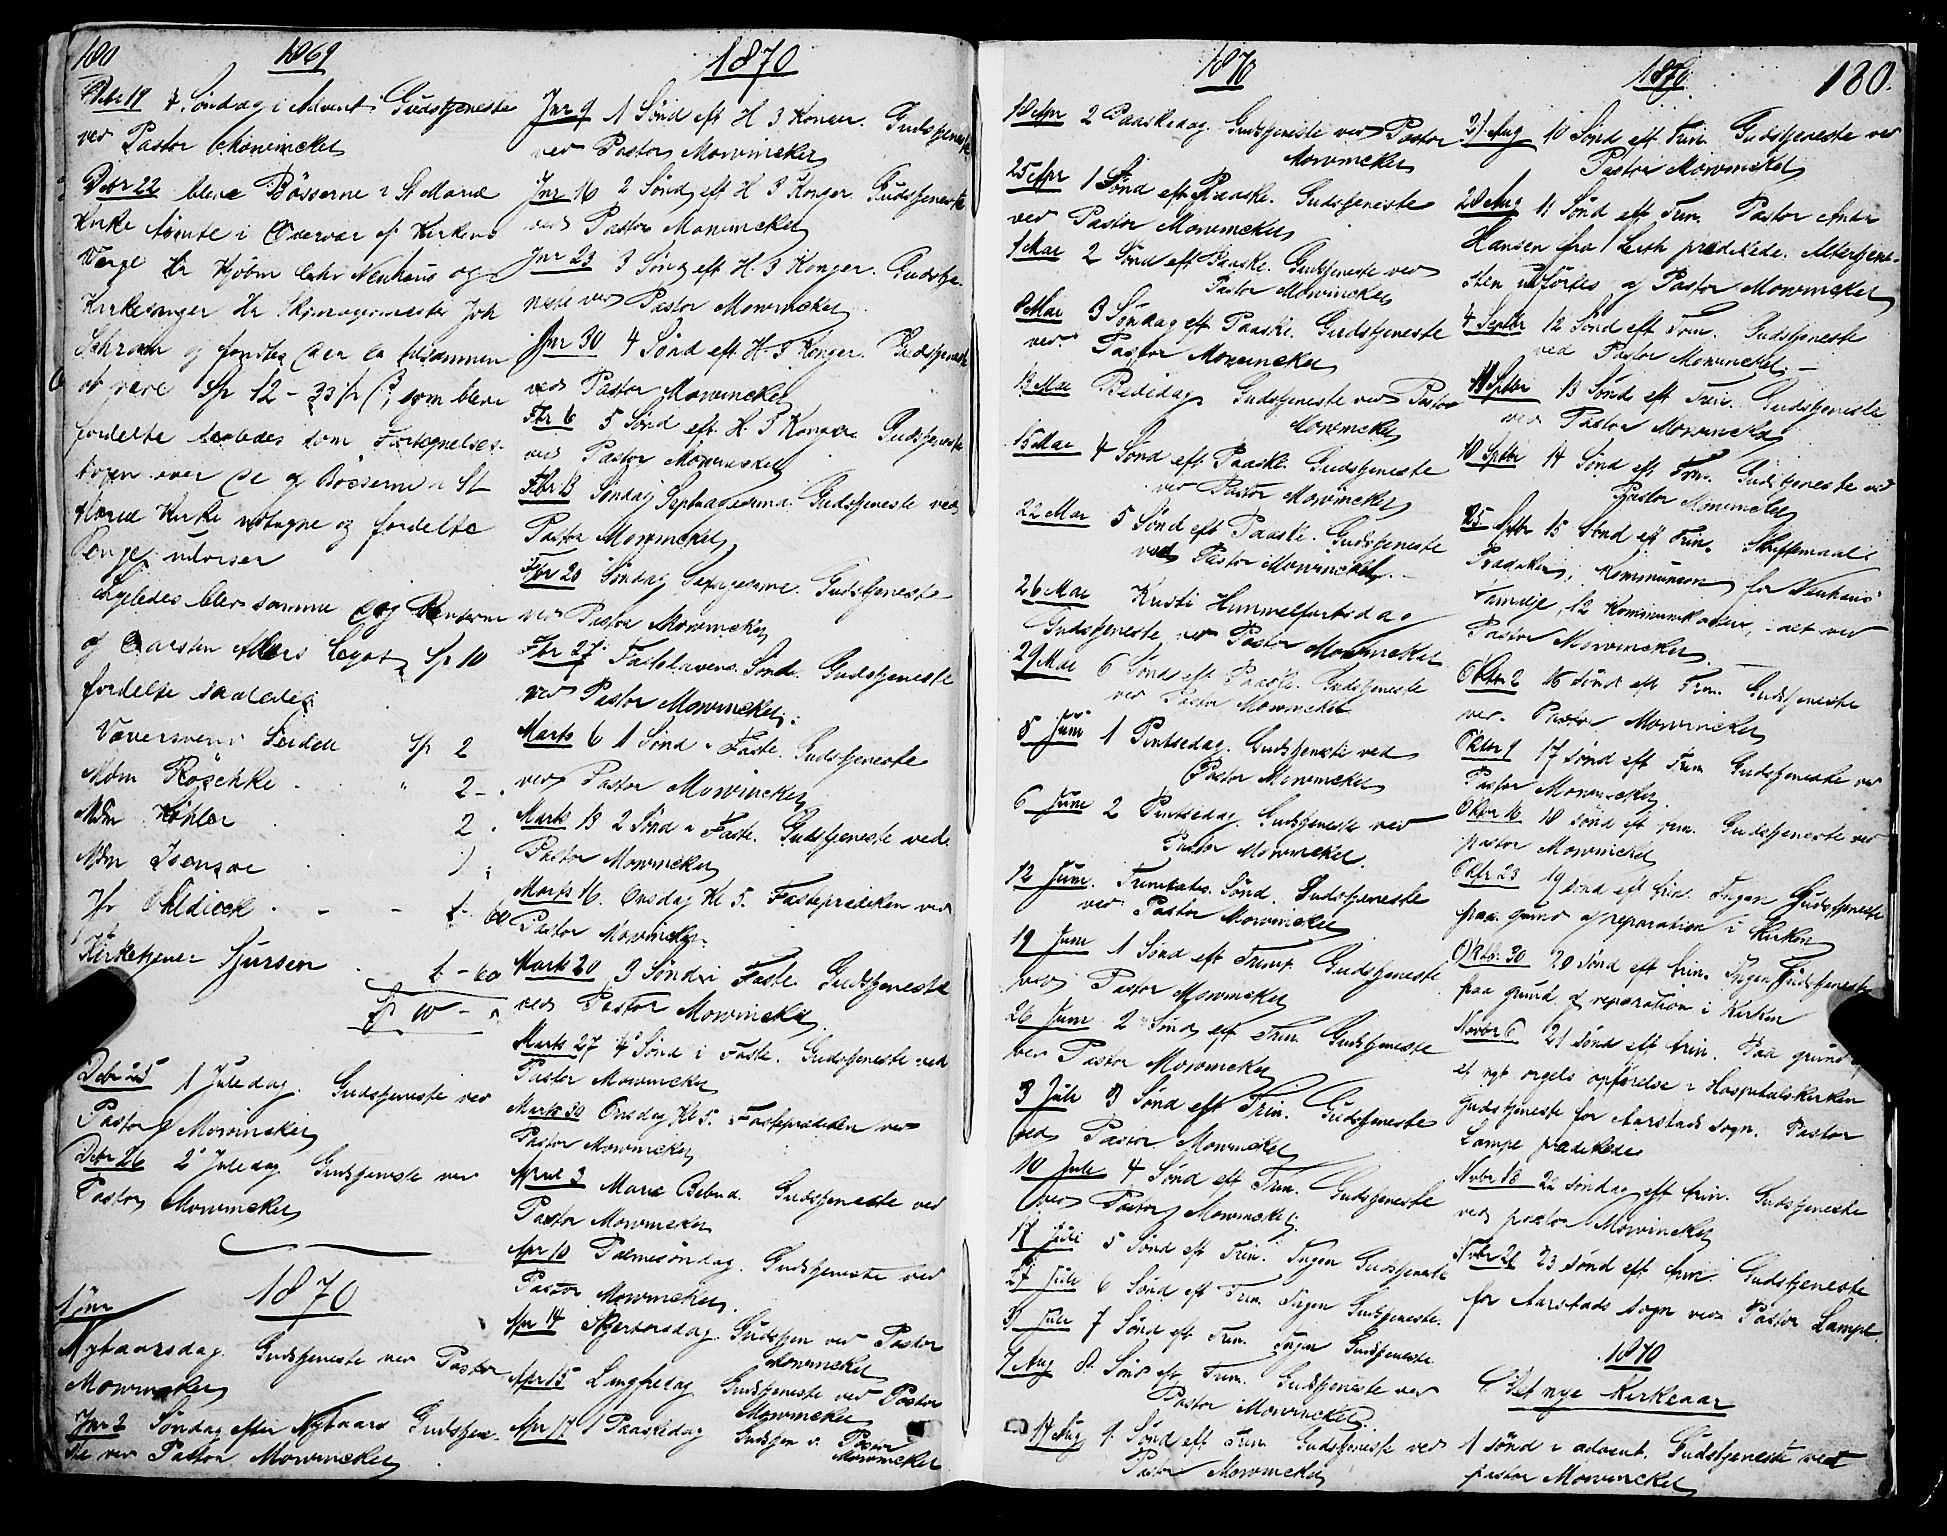 180
1869
Debr 19 4. Søndag i Advent Gudstjeneste
ved Pastor Mowinckel
Debr 22 bleve Bøsserne i St Mariæ
Kirke tømte i Overvær af Kirkens
Værge Hr Kjøbm Neuhaus og
Kirkesanger Hr Joh
Schram og fandtes der tilsammen
at være Sp 12 - 33 ß, som bleve
fordelte saaledes som Fortegnelses-
bogen over de af Bøsserne i St
Mariæ Kirke udtagne og fordelte
Penge udviser
Ligeledes blev samme Dag Renterne
af Carsten Legat Sp 10
fordelte saaledes
Væversvend Sp 2
Mdm Röschke " 2 -
Mdm Köhler 2
Mdm
Hr Ohldieck - - 1 - 60
Kirketjener Sjursen 1 - 60
Sp 10 - "
Debr 25 1 Juledag. Gudstjeneste ved
Pastor Mowinckel
Debr 26 2 Juledag Gudstjeneste ved
Pastor Mowinckel
1870
1 Jnr
Nytaarsdag. Gudstjeneste ved Pastor
Mowinckel
Jnr 2 Søndag efter Nytaar Gudstjene-
ste ved Pastor Mowinckel
1870
Jnr 9 1 Sønd eft H 3 Konger. Gudstjeneste
ved Pastor Mowinckel
Jnr 16 2 Sønd eft H. 3 Konger Gudstjeneste
ved Pastor Mowinckel
Jnr 23 3 Sønd eft H. 3 Konger. Gudstje-
neste ved Pastor Mowinckel
Jnr 30 4 Sønd eft H. 3 Konger. Gudstjeneste
ved Pastor Mowinckel
Fbr 6 5 Sønd eft H. 3 Konger Gudstjeneste
ved Pastor Mowinckel
Fbr 13 Søndag Septuagesima. Gudstjeneste ved
Pastor Mowinckel
Fbr 20 Søndag Sexagesima. Gudstjeneste
ved Pastor Mowinckel
Fbr 27 Fastelavens Sønd. Gudstjeneste
ved Pastor Mowinckel
Marts 6 1 Sønd i Faste. Gudstjeneste
ved Pastor Mowinckel
Marts 13 2 Sønd i Faste. Gudstjeneste ved
Pastor Mowinckel
Marts 16. Onsdag Kl 5. Fasteprædiken ved
Pastor Mowinckel
Marts 20 3 Sønd i Faste Gudstjeneste
ved Pastor Mowinckel
Marts 27 4 Sønd i Faste. Gudstjeneste ved
Pastor Mowinckel
Marts 30 Onsdag Kl 5. Fasteprædiken ved
Pastor Mowinckel
April 3 Mariæ Bebud. Gudstjeneste ved
Pastor Mowinckel
Apr 10 Palmesøndag. Gudstjeneste ved
Pastor Mowinckel.
Apr 14 Skjertorsdag Gudstjen ved Pastor
Mowinckel
Apr 15 Langfredag Gudstjeneste ved Pastor
Mowinckel
Apr 17 1 Paaskedag Gudstjen v. Pastor
Mowinckel
1870
18 Apr 2 Paaskedag. Gudstjeneste ved Pastor
Mowinckel
25 Apr 1 Sønd eft Paaske. Gudstjeneste
ved Pastor Mowinckel
1 Mai 2 Sønd eft Paaske. Gudstjeneste ved
Pastor Mowinckel
8 Mai 3 Søndag eft Paaske. Gudstjeneste
ved Pastor Mowinckel
13 Mai Bededag Gudstjeneste ved Pastor
Mowinckel
15 Mai 4 Sønd eft Paaske. Gudstjeneste
ved Pastor Mowinckel
22 Mai 5 Sønd eft Paaske. Gudstjeneste
ved Pastor Mowinckel. -
26 Mai Kristi Himmelfartsdag
Gudstjeneste ved Pastor Mowinckel
29 Mai 6 Sønd eft Paaske. Gudstjeneste
ved Pastor Mowinckel
5 Juni 1 Pintsedag. Gudstjeneste ved
Pastor Mowinckel
6 Juni 2 Pintsedag. Gudstjeneste ved
Pastor Mowinckel.
12 Juni. Trinitatis Sønd. Gudstjeneste
ved Pastor Mowinckel
19 Juni 1 Sønd eft Trinit. Gudstjeneste
ved Pastor Mowinckel
26 Juni 2 Sønd eft Trin. Gudstjeneste
ved Pastor Mowinckel
3 Juli 3 Sønd eft Trin. Gudstjeneste
ved Pastor Mowinckel
10 Juli 4 Sønd eft Trin. Gudstjeneste
ved Pastor Mowinckel
17 Juli 5 Sønd eft Trin. Ingen Gudstjeneste
Juli 6 Sønd eft Trin. Ingen Gudstjeneste.
Juli 7 Sønd eft Trin. Ingen Gudstjeneste
7 Aug 8. Sønd eft Trin. Gudstjeneste ved
Pastor Mowinckel.
14 Aug 9. Sønd eft Trin Gudstjeneste ved
Pastor Mowinckel
1870
180.
21 Aug 10 Sønd eft Trin. Gudstjeneste ved
Pastor Mowinckel
28 Aug 11 Sønd eft Trin. Pastor Andr
Hansen fra Leith prædikede. Altertjene-
sten udførtes af Pastor Mowinckel
4 Septbr 12 Sønd eft Trin. Gudstjeneste
ved Pastor Mowinckel. -
11 Septbr 13 Sønd eft Trin. Gudstjeneste
ved Pastor Mowinckel
18 Septbr 14 Sønd eft Trin. Gudstjeneste ved
Pastor Mowinckel
25 Septbr 15 Sønd eft Trin. Skriftemaal
Prædiken, Kommunion for Neuhaus'
Familje, 12 Kommunikanter, - alt ved
Pastor Mowinckel. -
Oktbr 2 16 Sønd eft Trin. Gudstjeneste
ved Pastor Mowinckel
Oktbr 9 17 Sønd eft Trin Gudstjeneste ved
Pastor Mowinckel.
Oktbr 16 18 sønd eft trin. Gudstjeneste ved
pastor Mowinckel
Oktbr 23 19 sønd eft trin. Ingen Gudstjeneste
paa grund af reparation i Kirken
Oktbr. 30 20 sønd eft trin. Ingen Gudstjeneste
paa grund af reparation i Kirken
Novbr 6 21 sønd eft trin. Paa grund af
et nyt orgels opførelse i Hospitalskirken
Gudstjeneste for Aarstads Sogn. Pastor
Lampe prædikede
Novbr 13 22 søndag eft trin. Gudstjeneste
ved pastor Mowinckel
Novbr 20 23 sønd eft trin. Gudstjeneste
for Aarstads Sogn ved Pastor Lampe.
1870
Det nye Kirkeaar
1 sønd i advent. Gudstjeneste ved
pastor Mowinckel